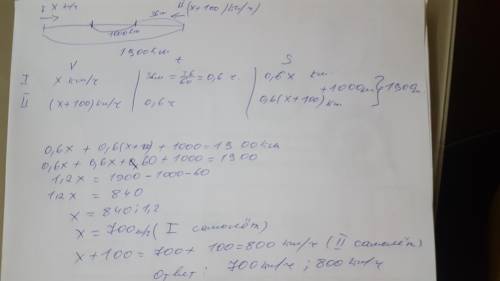 I x км/ч 36м II (x+100) км/ч
1000км
1900км
V t S
I x км/ч 36м = 36/60 = 0,6 ч. 0,6x км
+1000км } 1900км
II (x+100) км/ч 0,6 ч 0,6(x+100) км
0,6x + 0,6(x+100) + 1000 = 1900км
0,6x + 0,6x + 60 + 1000 = 1900
1,2x = 1900 - 1000 - 60
1,2x = 840
x = 840 : 1,2
x = 700км/ч ( I самолёт )
x + 100 = 700 + 100 = 800 км/ч ( II самолёт )
Ответ : 700 км/ч ; 800 км/ч